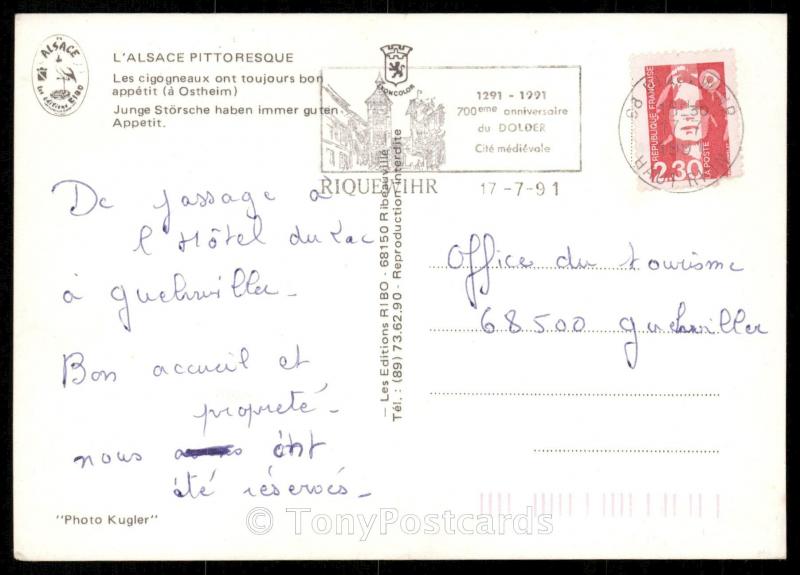 ALSACE
Les éditions Ribo
L'ALSACE PITTORESQUE
Les cigogneaux ont toujours bon
appétit (à Ostheim)
Junge Störsche haben immer guten
Appetit.
MONCOLOR
1291 - 1991
700eme anniversaire
du DOLDER
Cité médiévale
RIQUEWIHR
17-7-91
REPUBLIQUE FRANÇAISE
2,30
LA POSTE
De passage à
l'Hôtel du Lac
à Guebwiller -
Bon accueil et
propreté -
nous ont
été réservés -
"Photo Kugler"
— Les Editions RIBO - 68150 Ribeauvillé
Tél. : (89) 73.62.90 - Reproduction interdite
Office du tourisme
68500 Guebwiller
© TonyPostcards